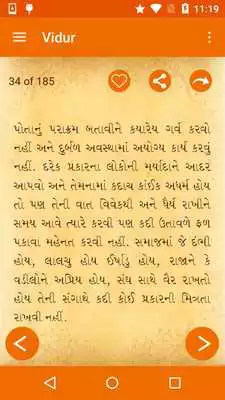 11:19
Vidur
34 of 185
પોતાનું પરાક્રમ બતાવીને ક્યારેય ગર્વ કરવો
નહીં અને દુર્બળ અવસ્થામાં અયોગ્ય કાર્ય કરવું
નહીં. દરેક પ્રકારના લોકોની મર્યાદાને આદર
આપવો અને તેમનામાં કદાચ કાંઈક અધર્મ હોય
તો પણ તેની વાત વિવેકથી અને ધૈર્ય રાખીને
સમય આવે ત્યારે કરવી પણ કદી ઉતાવળે ફળ
પકાવા મહેનત કરવી નહીં. સમાજમાં જે દંભી
હોય, લાલચુ હોય ઈર્ષાડુ હોય, રાજાને કે
વડીલોને અપ્રિય હોય, સંઘ સાથે વૈર રાખતો
હોય તેની સંગાથે કદી કોઈ પ્રકારની મિત્રતા
રાખવી નહીં.